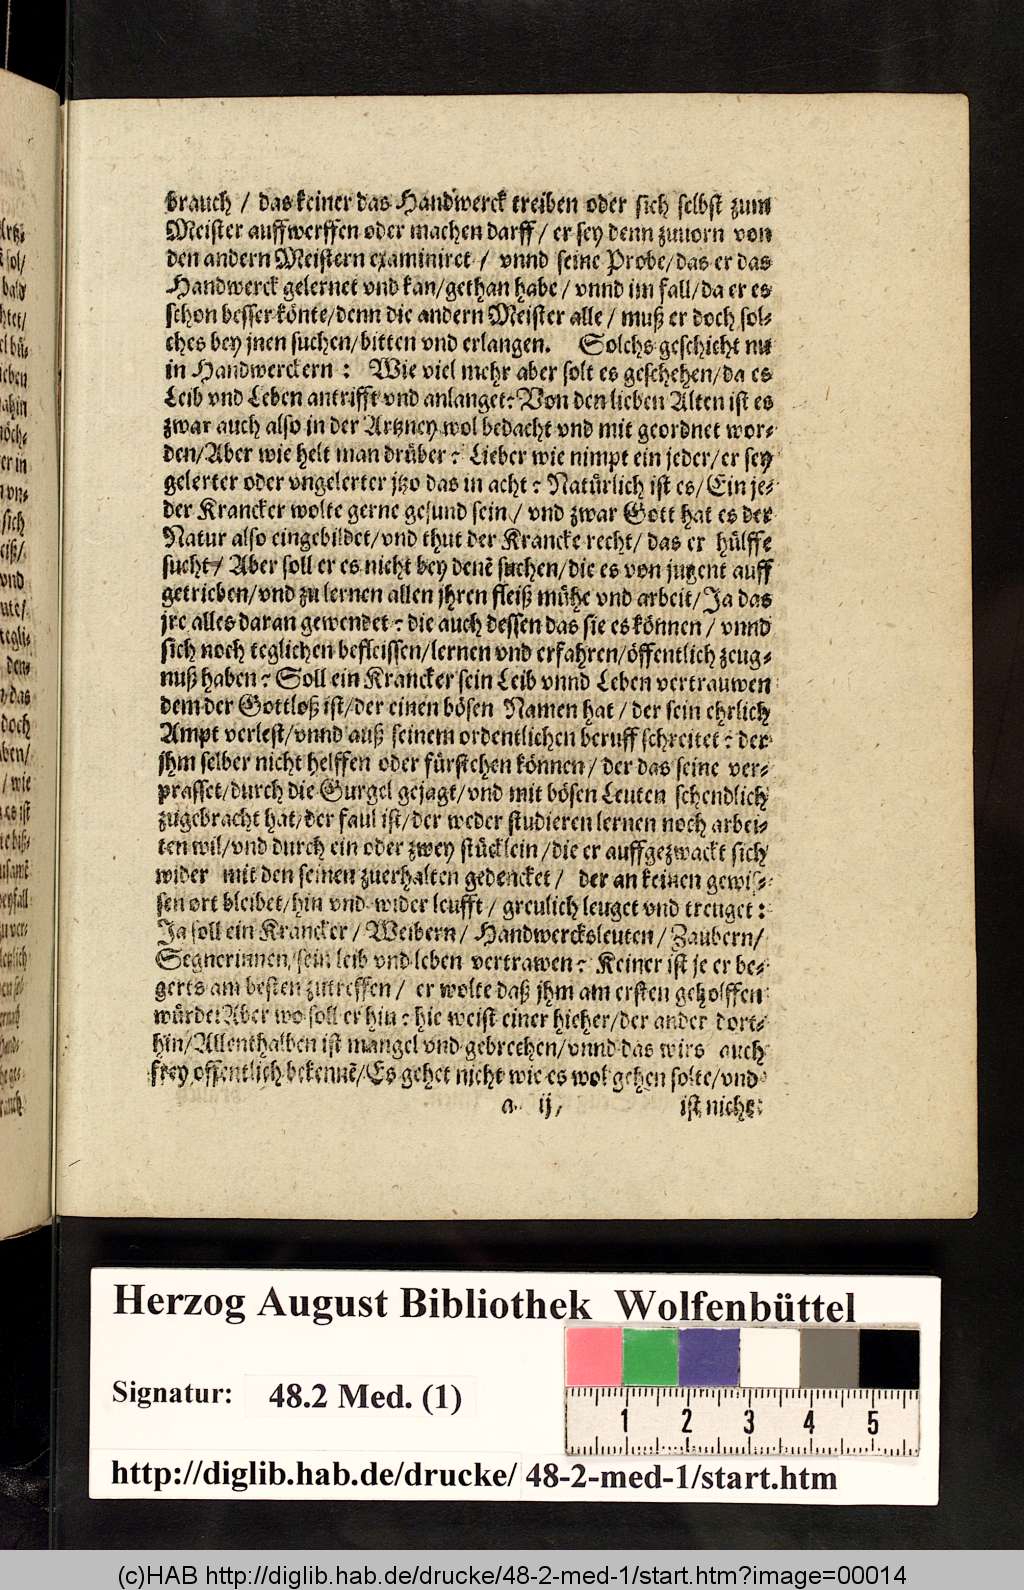 brauch / das keiner das Handwerck treiben oder sich selbst zum
Meister auffwerffen oder machen darff / er sey denn zuuorn von
den andern Meistern examiniret / vnnd seine Probe / das er das
Handwerck gelernet vnd kan / gethan habe / vnnd im fall / da er es
schon besser könte / denn die andern Meister alle / muß er doch sol-
ches bey jnen suchen / bitten vnd erlangen. Solchs geschicht nu
in Handwerckern : Wie viel mehr aber solt es geschehen / da es
Leib vnd Leben antrifft vnd anlanget? Von den lieben Alten ist es
zwar auch also in der Artzney wol bedacht vnd mit geordnet wor-
den / Aber wie helt man drüber? Lieber wie nimpt ein jeder / er sey
gelerter oder vngelerter jtzo das in acht? Natürlich ist es / Ein je-
der Krancker wolte gerne gesund sein / vnd zwar Gott hat es der
Natur also eingebildet / vnd thut der Krancke recht / das er hülffe
sucht / Aber soll er es nicht bey denē suchen / die es von jugent auff
getrieben / vnd zu lernen allen jhren fleiß mühe vnd arbeit / Ja das
jre alles daran gewendet? die auch dessen das sie es können / vnnd
sich noch teglichen befleissen / lernen vnd erfahren / öffentlich zeug-
nuß haben? Soll ein Krancker sein Leib vnnd Leben vertrauwen
dem der Gottloß ist / der einen bösen Namen hat / der sein ehrlich
Ampt verlest / vnnd auß seinem ordentlichen beruff schreitet? der
jhm selber nicht helffen oder fürstehen können / der das seine ver-
prasset / durch die Gurgel gejagt / vnd mit bösen Leuten schendlich
zugebracht hat / der faul ist / der weder studieren lernen noch arbei-
ten wil / vnd durch ein oder zwey stücklein / die er auffgezwackt sich
wider mit den seinen zuerhalten gedencket / der an keinen gewis-
sen ort bleibet / hin vnd wider leufft / greulich leuget vnd treuget :
Ja soll ein Krancker / Weibern / Handwercksleuten / Zaubern /
Segnerinnen / sein leib vnd leben vertrawen? Keiner ist je er be-
gerts am besten zutreffen / er wolte daß jhm am ersten geholffen
würde: Aber wo soll er hin? hie weist einer hieher / der ander dort-
hin / Allenthalben ist mangel vnd gebrechen / vnnd das wirs auch
frey offentlich bekennē / Es gehet nicht wie es wol gehen solte / vnd
a ij /
ist nicht
Herzog August Bibliothek Wolfenbüttel
Signatur: 48.2 Med. (1)
1 2 3 4 5
http://diglib.hab.de/drucke/ 48-2-med-1/start.htm
(c)HAB http://diglib.hab.de/drucke/48-2-med-1/start.htm?image=00014